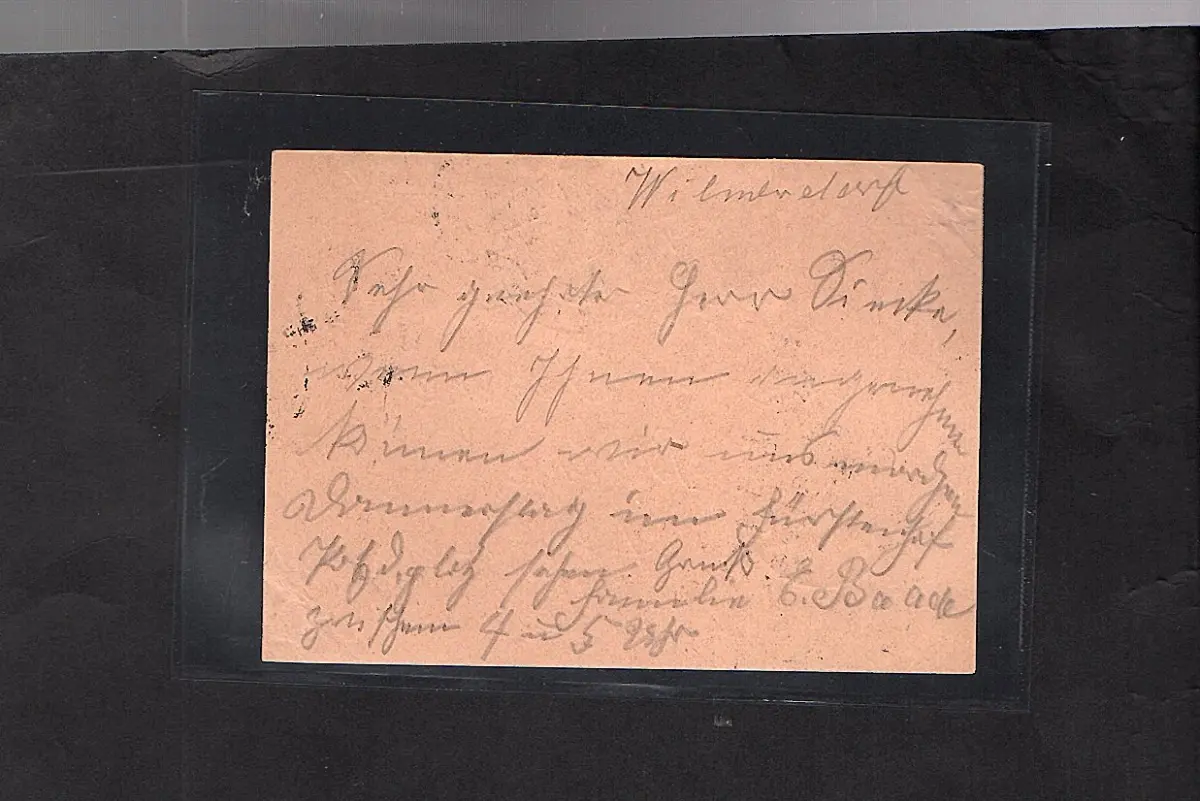 Wilmersdorf
Sehr geehrter Herr Siecke,
wenn Ihnen angenehm
können wir uns morgen
Donnerstag im Fürstenhof
Potsd. platz sehen. Gruß
Familie E. Baade
zwischen 4 u 5 Uhr